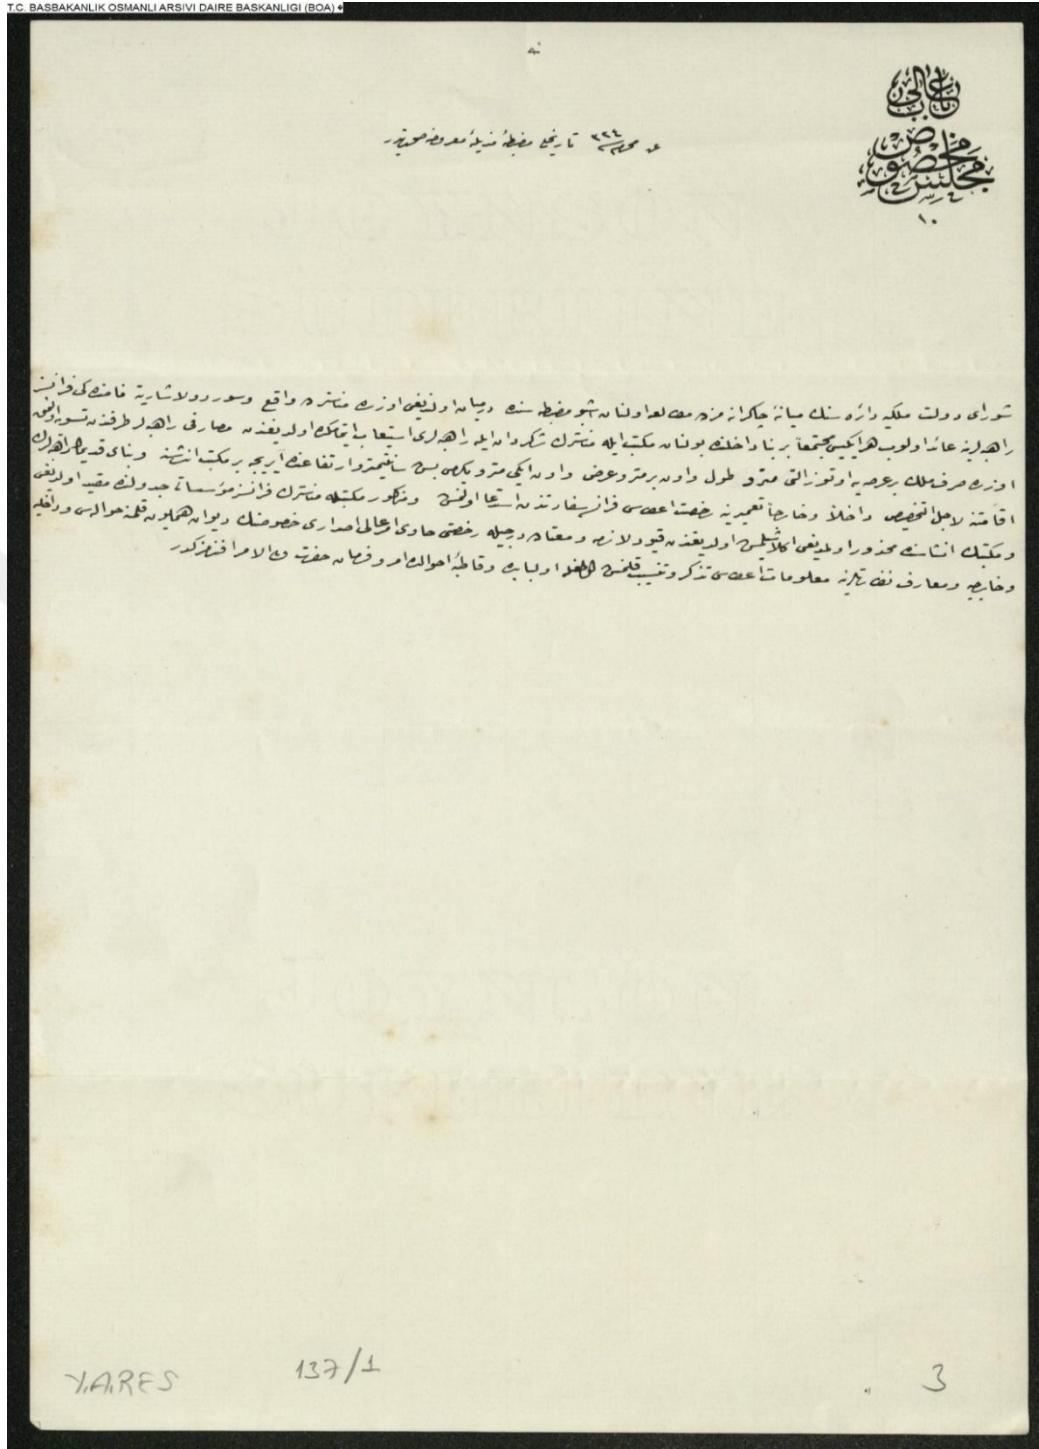 T.C. BASBAKANLIK OSMANLI ARSIVI DAIRE BASKANLIGI (BOA)
باب عالی
مجلس مخصوص
١٠
محرم ٣٢٤ تاریخلی مضبطهٔ مذیلهٔ معروضه صورتیدر
شورای دولت ملکیه دائره سنك میانهٔ چاکرانه مزده مطالعه اولنان اشبو مضبطه سنده در میان اولندیغی اوزره مناسترده واقع وسور دولاشاریته نامنده کی فرانسز
راهبه لرینه عائد اولوب هر ایکیسی مجتمعاً بر بنا داخلنده بولنان مکتب ایله مناسترك شاگردان ایله راهبه لری استیعاب ایتمامکده اولدیغندن مصارفی راهبه لر طرفندن تسویه اولنمق
اوزره صرف ملك بر عرصه یه اوتوز التی مترو طول واون بر مترو عرض واون ایکی مترو یکرمی بش سانتیمترو ارتفاعنده آیریجه بر مکتب انشاسنه وبنای قدیمك راهبه لرك
اقامتنه لاجل التخصیص داخلاً وخارجاً تعمیرینه رخصت اعطاسی فرانسه سفارتندن استدعا اولنمش ومذکور مکتبله مناسترك فرانسز مؤسساتی جدولنده مقید اولدیغی
ومکتبك انشاسنده محذور اولمدیغی اکلاشیلمش اولدیغندن قیود لازمه ومعتاده درجیله رخصتی حاوی امر عالی اصداری خصوصنك دیوان همایون قلمنه حواله سی وداخلیه
وخارجیه ومعارف نظارتلرینه معلومات اعطاسی تذکر وتنسیب قلنمش اولبابده وقاطبهٔ احوالده امر وفرمان حضرت ولی الامر افندمزکدر
Y.A.RES
137/1
3